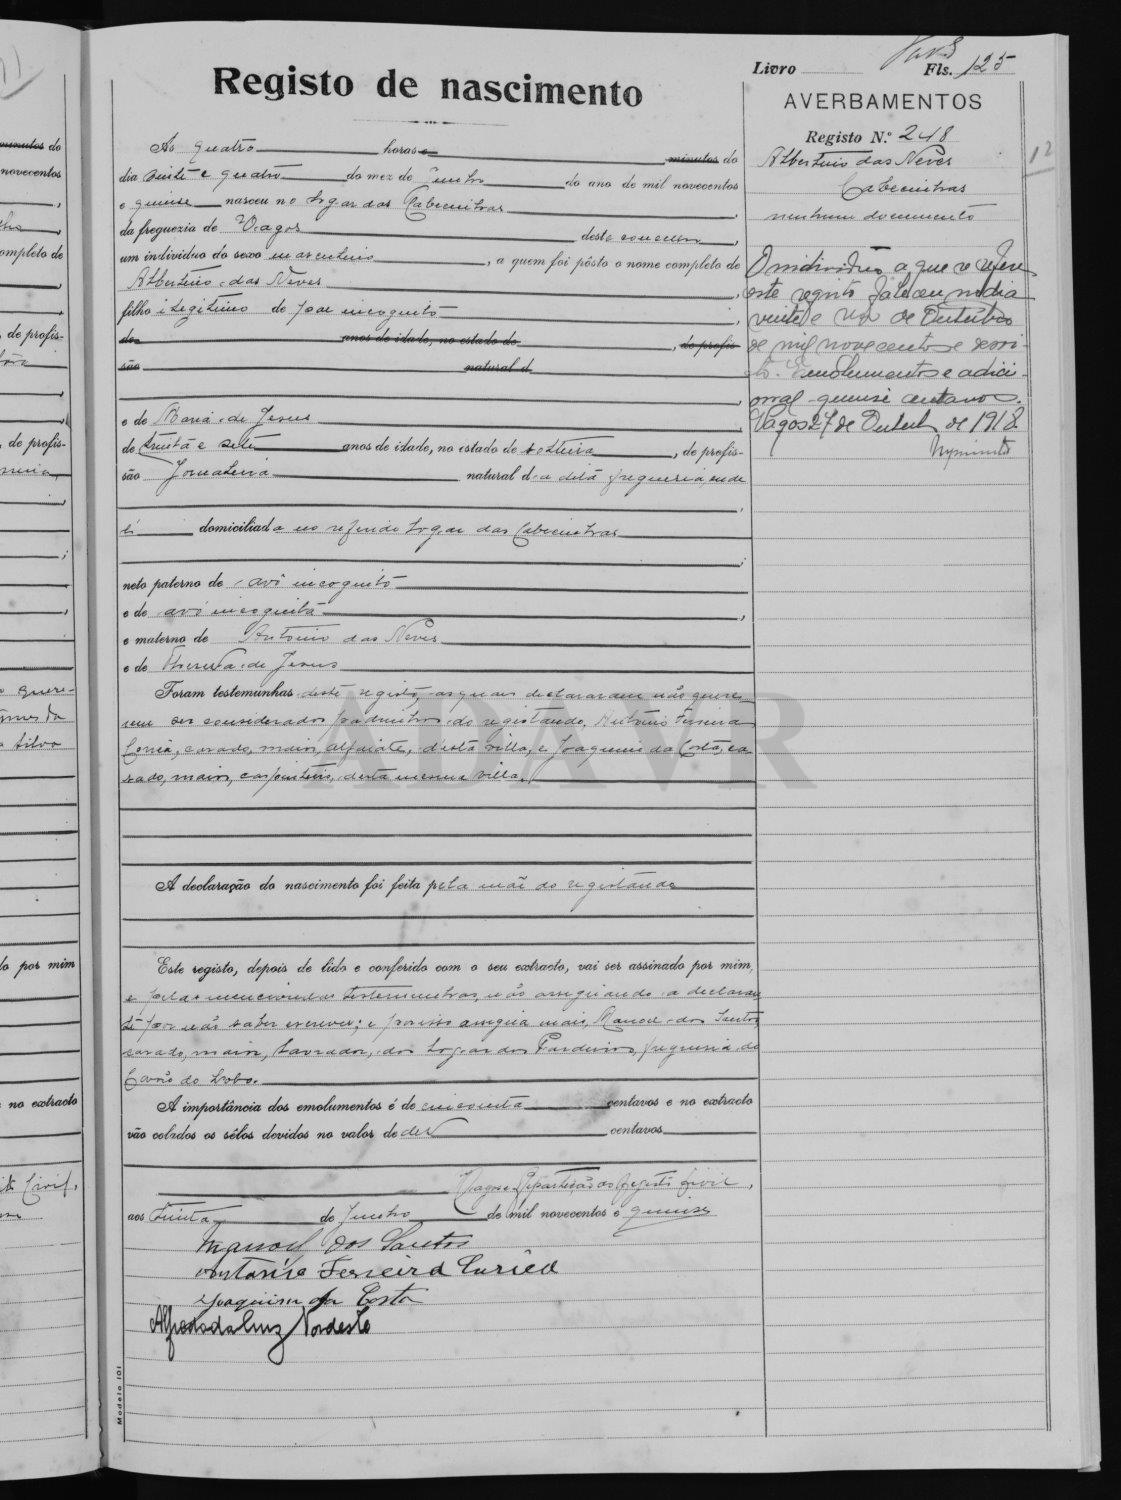 Livro Fls. 125
Registo de nascimento
AVERBAMENTOS
Registo N.º 248
Albertino das Neves
Cabecinhas
nenhum documento
O individuo a que se refere
este registo faleceu no dia
vinte e um de Outubro
de mil novecentos e desoi-
to. Emolumentos e adici-
onal quinse centavos.
Vagos 27 de Outub. de 1918
Ás quatro horas e minutos do
dia vinte e quatro do mez de Junho do ano de mil novecentos
e quinse nasceu no logar das Cabecinhas,
da freguezia de Vagos deste concelho,
um individuo do sexo masculino, a quem foi pôsto o nome completo de
Albertino das Neves,
filho ilegitimo de pae incognito,
de anos de idade, no estado de, de profis-
são natural d
e de Maria de Jesus,
de trinta e sete anos de idade, no estado de solteira, de profis-
são Jornaleira natural da dita freguesia, onde
é domiciliada no referido logar das Cabecinhas
;
neto paterno de avô incognito
e de avó incognita,
e materno de António das Neves
e de Thereza de Jesus
Foram testemunhas deste registo, as quaes declararam não quere-
rem ser considerados padrinhos do registando, António Ferreira
casado, maior, alfaiate, d'esta villa, e Joaquim da Costa, ca-
sado, maior, carpinteiro, desta mesma villa.
A declaração do nascimento foi feita pela mãe do registando
Este registo, depois de lido e conferido com o seu extracto, vai ser assinado por mim,
e pelas mencionadas testemunhas, não assignando a declaran-
te por não saber escrever; e por isso assigna mais, Manoel dos Santos
casado, maior, lavrador, do logar dos Pardeiros, freguesia de
Covão do Lobo.
A importância dos emolumentos é de cincoenta centavos e no extracto
vão colados os sêlos devidos no valor de dez centavos
Vagos e Repartição do Registo Civil,
aos trinta de Junho de mil novecentos e quinse
Manoel dos Santos
António Ferreira
Joaquim da Costa
Alfredo da Cruz Nordeste
Modelo 101
ADAVR